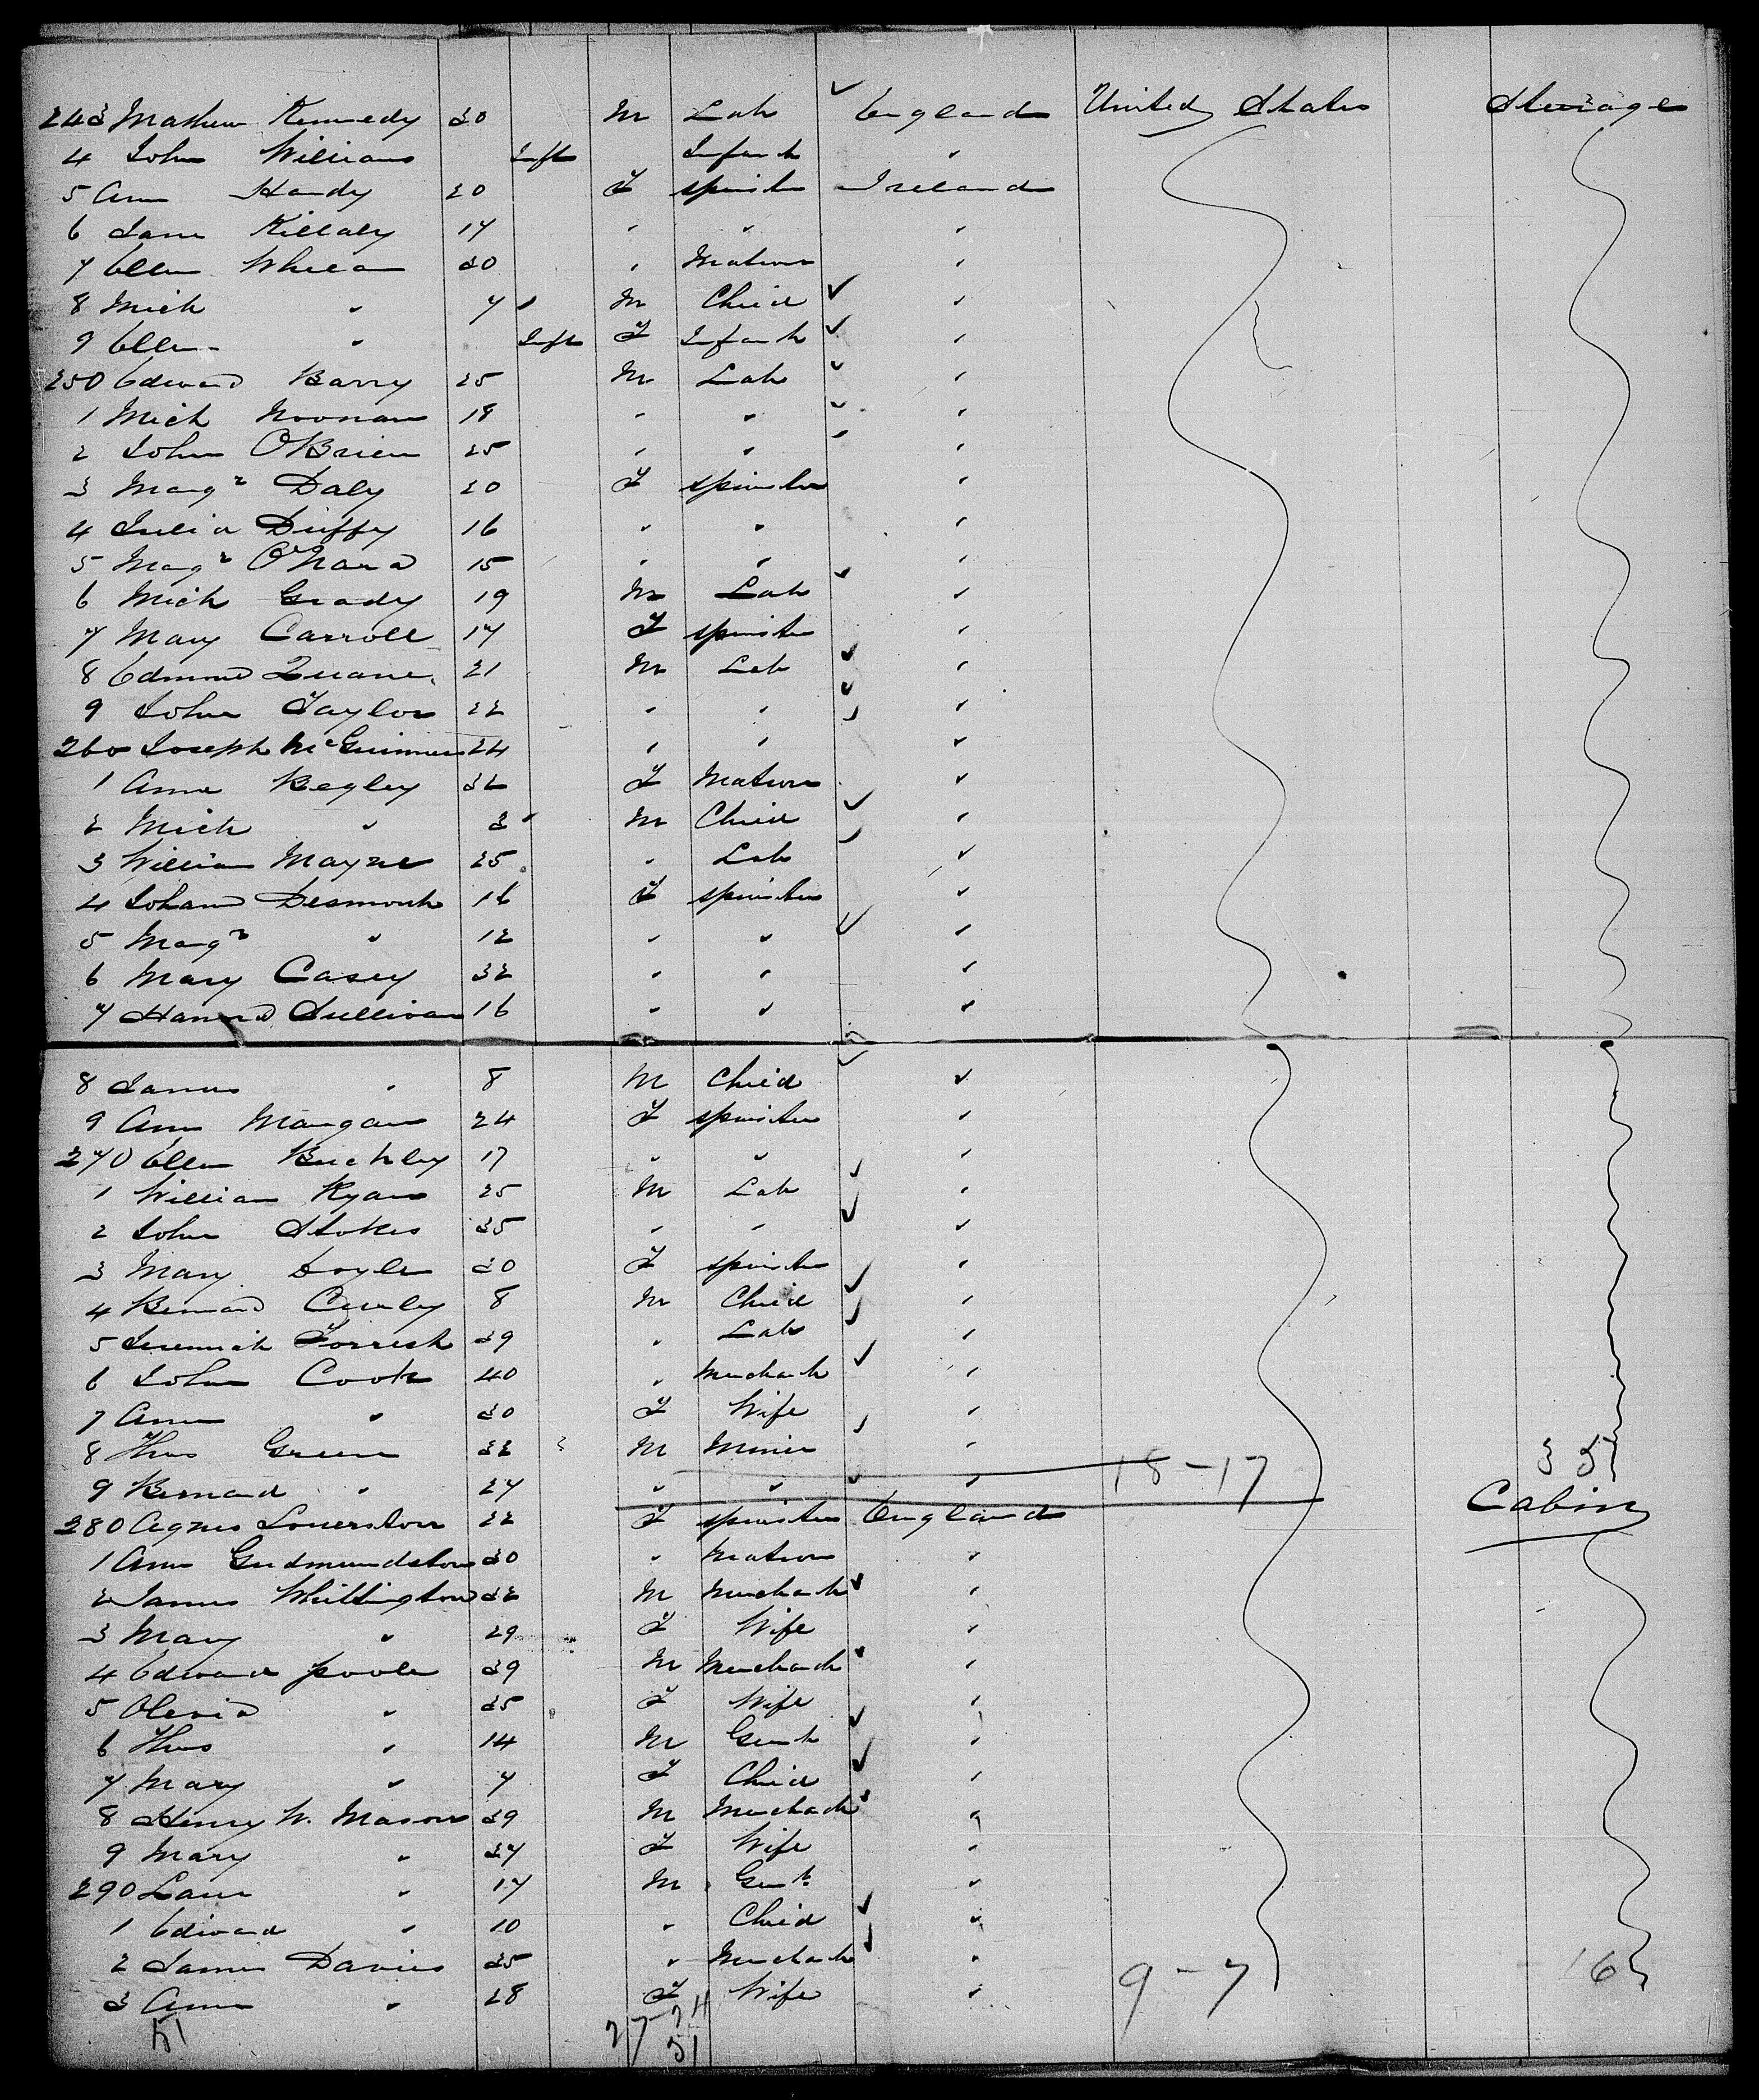 243 Mathew Kennedy 30 M Lab England United States Steerage
4 John Williams Inft Infant "
5 Ann Handy 20 F spinster Ireland
6 Jane Killaly 17 " " "
7 Ellen Whelan 30 " Matron "
8 Mich " 7 M Child "
9 Ellen " Inft F Infant "
250 Edward Barry 25 M Lab "
1 Mich Noonan 18 " " "
2 John OBrien 25 " " "
3 Margt Daly 20 F spinster "
4 Julia Duffy 16 " " "
5 Magt O'Hara 15 " " "
6 Mich Grady 19 M Lab "
7 Mary Carroll 17 F spinster "
8 Edmond Quane 21 M Lab "
9 John Taylor 22 " " "
260 Joseph McGuinness 24 " " "
1 Anne Begley 32 F Matron "
2 Mich " 3 M Child "
3 William Mayne 25 " Lab "
4 Johana Desmond 16 F spinster "
5 Margt " 12 " " "
6 Mary Casey 32 " " "
7 Hannah Sullivan 16 " " "
8 James " 8 M Child "
9 Ann Mangan 24 F spinster "
270 Ellen Buckley 17 " " "
1 William Ryan 25 M Lab "
2 John Stokes 35 " " "
3 Mary Doyle 30 F spinster "
4 Bernard Curley 8 M Child "
5 Jeremiah 39 " Lab "
6 John Cook 40 " Merchant "
7 Ann " 30 F Wife "
8 Thos Green 32 M Miner " 35
9 Bernard " 27 " " " 18-17
280 Agnes 22 F spinster England Cabin
1 Ann Gudmundston 30 " Matron "
2 James Whittington 32 M Merchant "
3 Mary " 29 F Wife "
4 Edward Poole 39 M Merchant "
5 Olevia " 35 F Wife "
6 Thos " 14 M Gent "
7 Mary " 7 F Child "
8 Henry W. Mason 39 M Merchant "
9 Mary " 37 F Wife "
290 " 17 M Gent "
1 Edward " 10 " Child "
2 James Davies 35 " Merchant " 16
3 Ann " 28 F Wife " 9-7
51 27-24
51